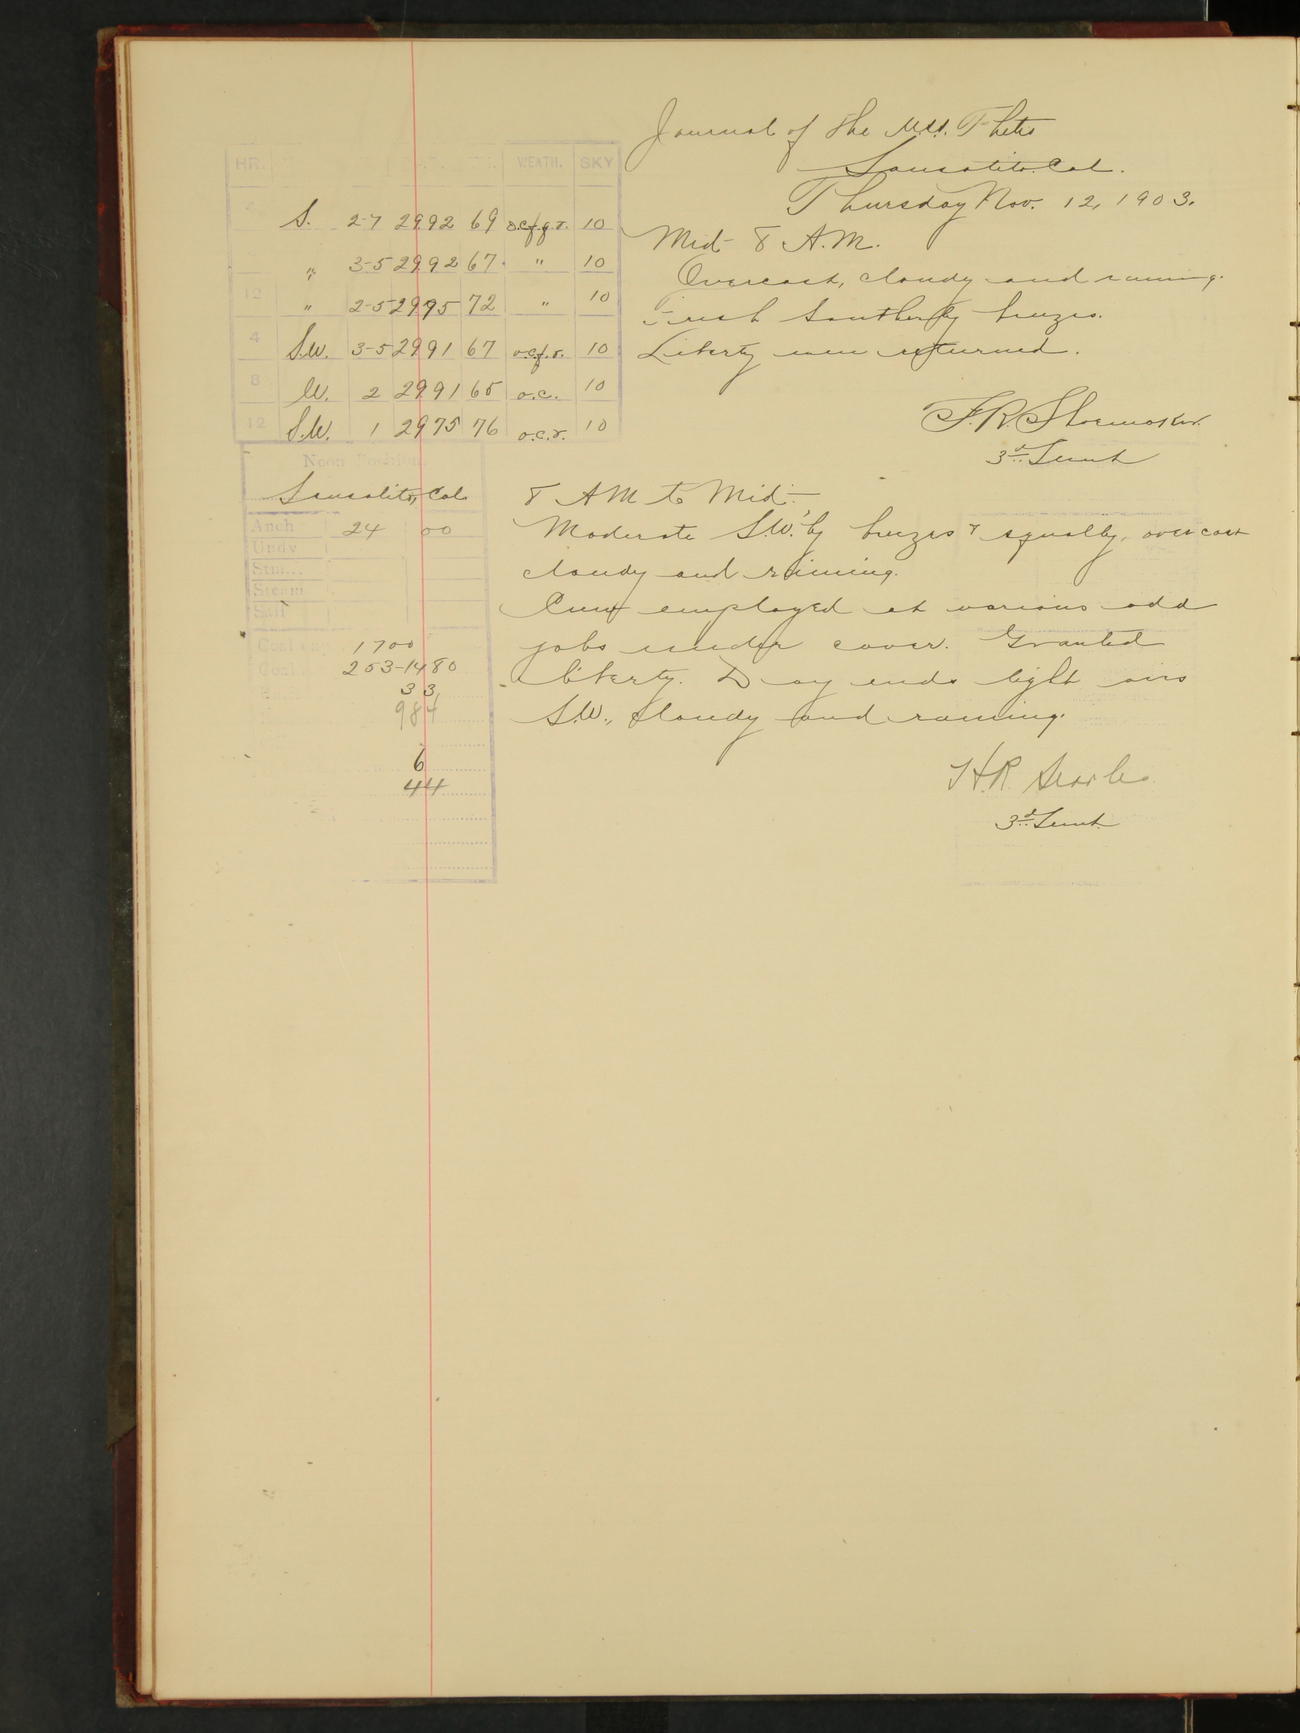 Journal of the U.S.S. Thetis
Sausalito, Cal.
Thursday Nov. 12, 1903.
HR. WEATH. SKY
4 S. 2-7 2992 69 o.c.f.g.r. 10
" 3-5 2992 67 " 10
12 " 2-5 2995 72 " 10
4 S.W. 3-5 2991 67 o.c.f.r. 10
8 W. 2 2991 65 o.c. 10
12 S.W. 1 2975 76 o.c.r. 10
Mid- 8 A.M.
Overcast, cloudy and raining.
Fresh Southerly breezes.
Liberty men returned.
3d Lieut
Noon Position.
Sausalito, Cal.
Anch 24 00
Undv
Stm...
Steam
Sail
Coal 1700
Coal 253-1480
33
984
6
44
8 AM to Mid-
Moderate S.W.'ly breezes & squally, overcast
cloudy and raining.
Crew employed at various odd
jobs under cover. Granted
liberty. Day ends light airs
S.W., cloudy and raining.
H.R. Searles
3d Lieut.